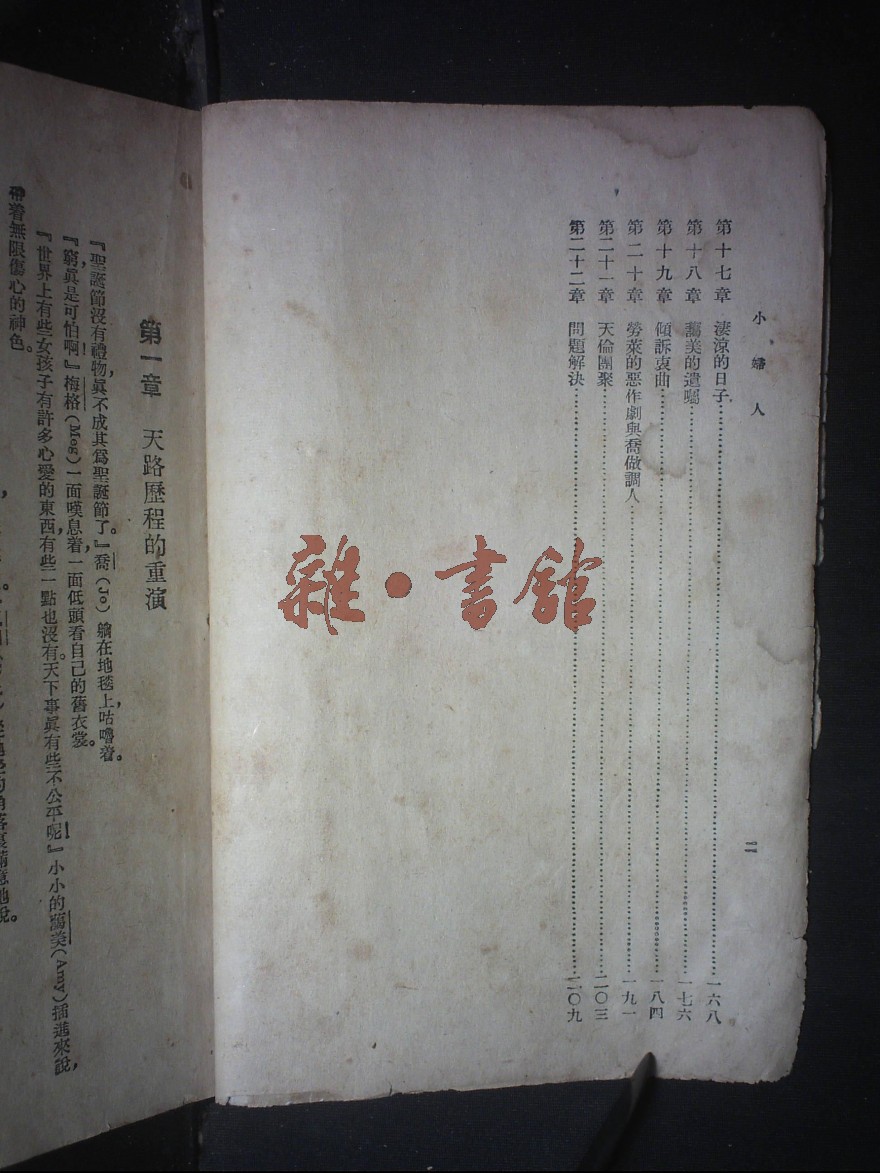 小婦人
二
第十七章 淒涼的日子……一六八
第十八章 藹美的遺囑……一七六
第十九章 傾訴衷曲……一八四
第二十章 勞萊的惡作劇與喬做調人……一九一
第二十一章 天倫團聚……二〇三
第二十二章 問題解決……二〇九
雜·書館
第一章 天路歷程的重演
『聖誕節沒有禮物，眞不成其爲聖誕節了。』喬(Jo) 躺在地毯上咕嚕着。
『窮眞是可怕啊！』梅格(Meg)一面嘆息着，一面低頭看自己的舊衣裳。
『世界上有些女孩子有許多心愛的東西，有些一點也沒有。天下事眞有些不公平呢！』小小的藹美(Amy)插進來說，
帶着無限傷心的神色。
角落裏滿意地說。